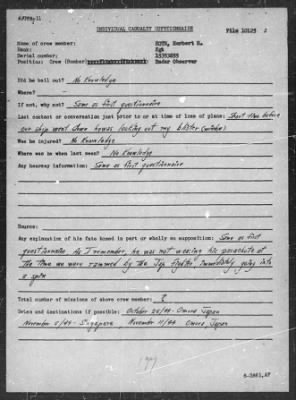 INDIVIDUAL CASUALTY QUESTIONNAIRE
Name of crew member: Herbert
Rank: Sgt
Serial number:
Position: Crew (Bomber) Radar Observer
Did he bail out? No Knowledge
Where?
If not, why not? Same as first questionnaire
Last contact or conversation just prior to or at time of loss of plane: Short time before
our ship went down he was looking out my blister (window)
Was he injured? No Knowledge
Where was he when last seen? No Knowledge
Any hearsay information: Same as first questionnaire
Source:
Any explanation of his fate based in part or wholly on supposition: Same as first
questionnaire As I remember, he was not wearing his parachute at
the time we were rammed by the Jap fighter immediately going into
a spin
Total number of missions of above crew member: ?
Dates and destinations if possible: October 25/44 - Omura Japan
November 5/44 - Singapore November 11/44 Omura Japan